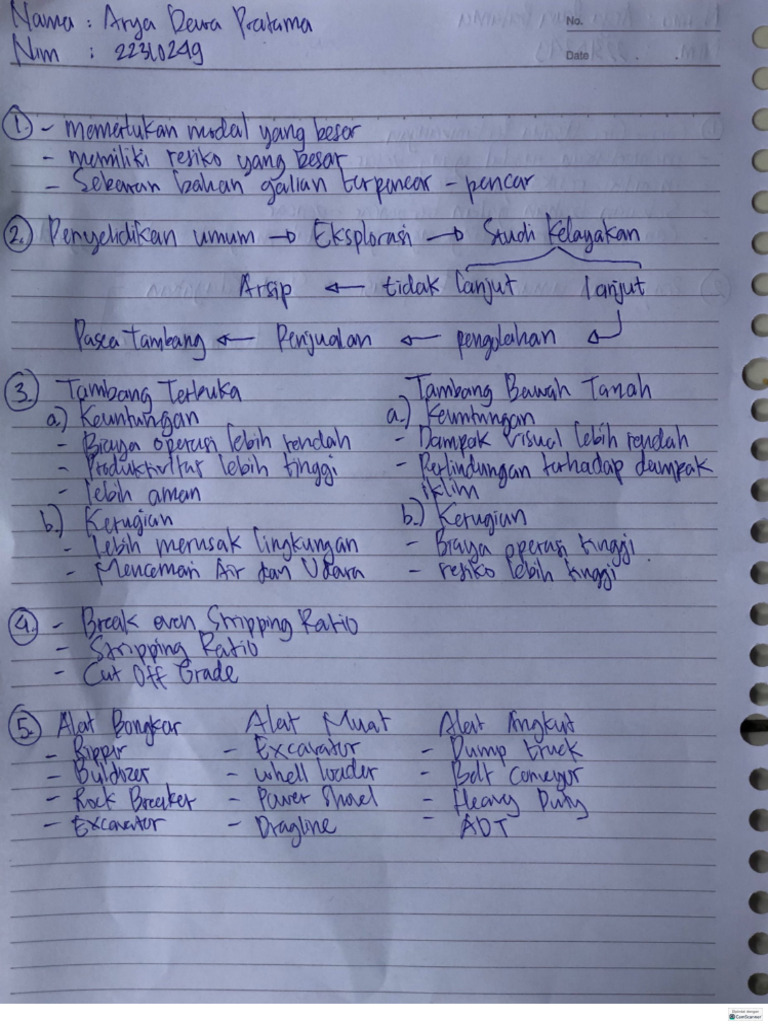 Nama : Arya Dewa Pratama
No.
Nim : 22310249
Date
1. - memerlukan modal yang besar
- memiliki resiko yang besar
- Sebaran bahan galian terpencar - pencar
2. Penyelidikan umum → Eksplorasi → Studi Kelayakan
Arsip ← tidak lanjut lanjut
Pasca Tambang ← Penjualan ← pengolahan ↲
3. Tambang Terbuka Tambang Bawah Tanah
a.) Keuntungan a.) Keuntungan
- Biaya operasi lebih rendah - Dampak visual lebih rendah
- Produktivitas lebih tinggi - Perlindungan terhadap dampak
- lebih aman iklim
b.) Kerugian b.) Kerugian
- lebih merusak lingkungan - Biaya operasi tinggi
- Mencemari Air dan Udara - resiko lebih tinggi
4. - Break even Stripping Ratio
- Stripping Ratio
- Cut Off Grade
5. Alat Bongkar Alat Muat Alat Angkut
- Ripper - Excavator - Dump truck
- Buldozer - whell loader - Belt Conveyor
- Rock Breaker - Power Shovel - Heavy Duty
- Excavator - Dragline - ADT
CamScanner